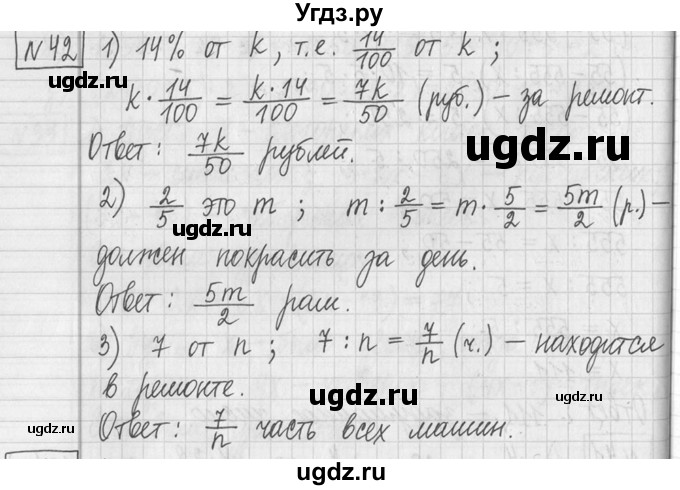 Угдз.ру
№42 1) 14% от k, т.е. 14/100 от k;
k · 14/100 = k·14/100 = 7k/50 (руб.) – за ремонт.
Ответ: 7k/50 рублей.
ugdz.ru
ugdz.ru
2) 2/5 это m; m : 2/5 = m · 5/2 = 5m/2 (р.) –
ugdz.ru
должен покрасить за день.
Ответ: 5m/2 рам.
3) 7 от n; 7 : n = 7/n (ч.) – находится
в ремонте.
ugdz.ru
ugdz.ru
ugdz.ru
Ответ: 7/n часть всех машин.
ugdz.ru